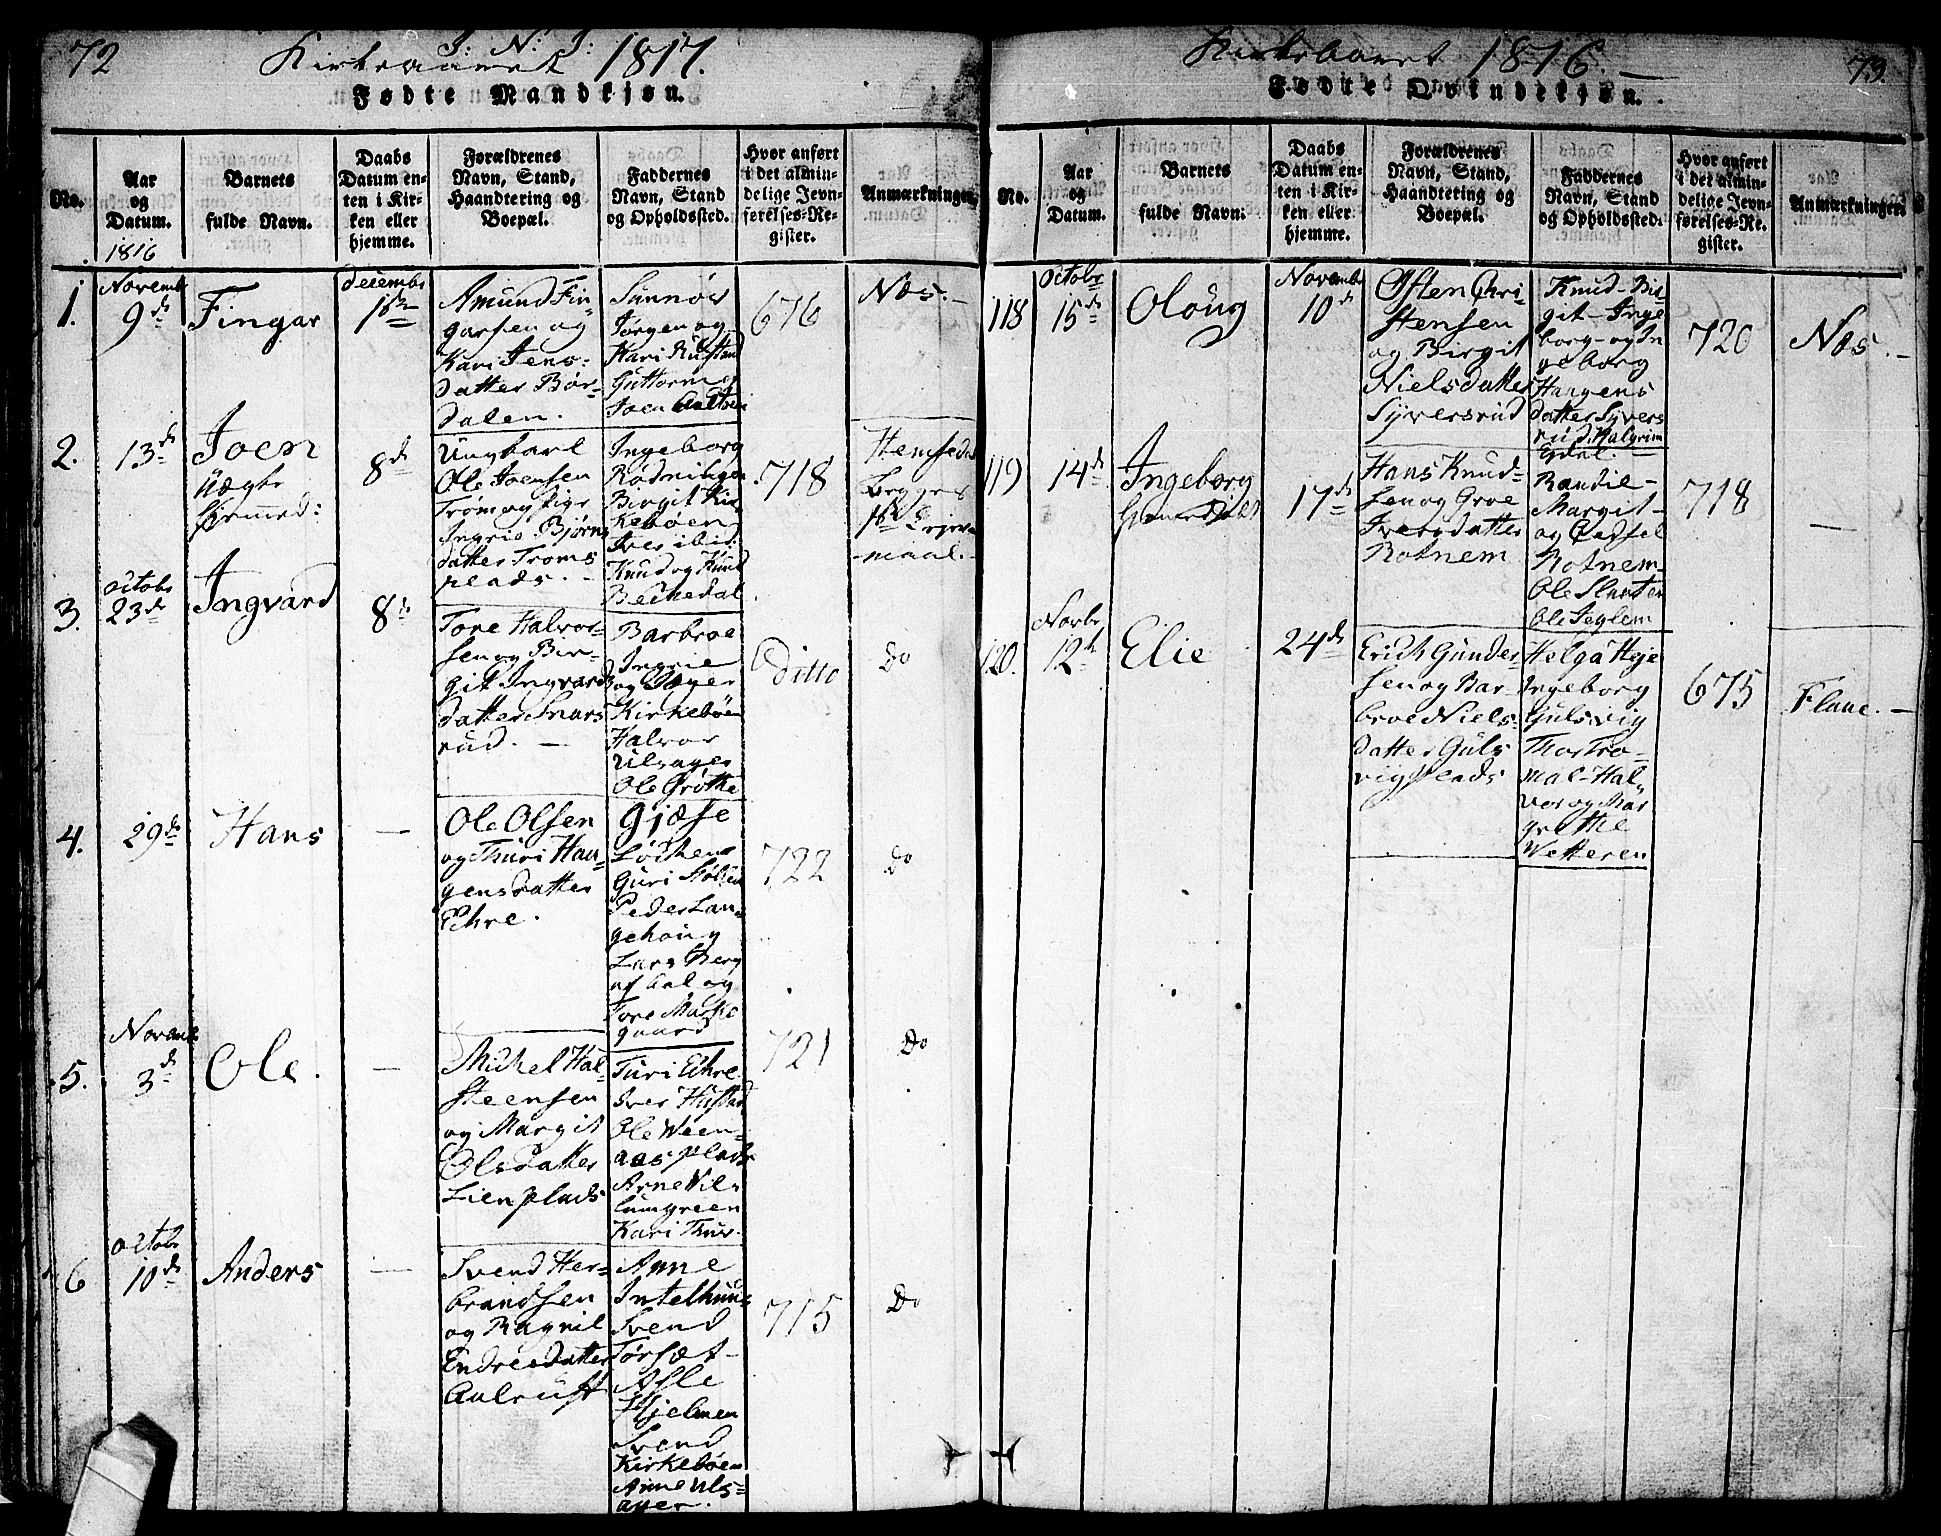 72
I: N: I:
Kirkeaaret 1817.
Fødte Mandkjøn.
No.
Aar
og
Datum.
1816
Barnets
fulde Navn.
Daabs
Datum en-
ten i Kir-
ken eller
hjemme.
Forældrenes
Navn, Stand,
Haandtering og
Boepæl.
Faddernes
Navn, Stand
og Opholdssted.
Hvor anført
i det almin-
delige Jevn-
førelses-Re-
gister.
Anmærkninger
1.
Novemb
9de
Fingar
decembr
1ste
Amund Fin-
garsen og
Kari Jens-
datter Bør-
dalen.
Sünnøv
Jørgen og
Kari Rustand
Guttorm og
Joen
676
Næs.
2.
13de
Joen
uægte
8de
Ungkarl
Ole Joensen
Trøm og Pige
Ingrie Bjørns
datter Troms
plads.
Ingeborg
Rodningen
Birgit Kir
kebøen
Iver ibid
Knud og Knud
Bechedal
718
Hemsedal
Begges
1ste Leier
maal.
3.
octobr
23de
Ingvard
8de
Tore Halvor-
sen og Bir-
git Ingvards
datter Snars
rud.
Barbroe
Ingrie
og Aager
Kirkebøen
Halvor
Ulsager
Ole Grøthe
ditto
Do
4.
29de
Hans
Ole Olsen
og Thuri Haa-
gensdatter
Echre.
Gjøse
Løchen
Guri Støhlen
Peder Lan-
gehoug
Lars Berg
af Aal og
Tore Mørke
gaard
722
Do
5.
Novemb
3de
Ole.
Michel Hal-
steensen
og Margit
Olsdatter
Lienplads
Turi Echre
Iver Hustad
Ole Ween-
aasplads
Arne Vil-
lumgreen
Kari Thur.
721
Do
6
octobr
10de
Anders
Svend Her-
brandsen
og Ragnil
Endresdatter
Aalrust
Anne
Intelhuus
Svend
Torsæt
Asle
Hjelmen
Svend
Kirkebøen
Anne Uls-
ager.
715
Do
Kirkeaaret 1816.
73.
Fødte Qvindekjøn.
No.
Aar
og
Datum.
Barnets
fulde Navn.
Daabs
Datum en-
ten i Kir-
ken eller
hjemme.
Forældrenes
Navn, Stand,
Haandtering og
Boepæl.
Faddernes
Navn, Stand
og Opholdssted.
Hvor anført
i det almin-
delige Jevn-
førelses-Re-
gister.
Anmærkninger
118
octobr
15de
Oloug
Novembr
10de
Østen Chri-
stensen
og Birgit
Nielsdatter
Syversrud
Knud Bir-
git Inge
borg og In
geborg
Haagens
datter Syvers
rud. Halgrim
Eydal.
720
Næs.
119
14de
Ingeborg
17de
Hans Knud-
sen og Groe
Iversdatter
Rotnem
Randie
Margit
og Endsel
Rotnem
Ole Slaaten
Ole Jeglem
718
120.
Novbr
12te
Elie
24de
Erich Gunder-
sen og Bar-
broe Niels-
datter Guls
vigplads
Helga Heje
Ingeborg
Gulsvig
Thor Tro-
mal Hal-
vor og Mar
grethe
Wetteren
675
Flaae.